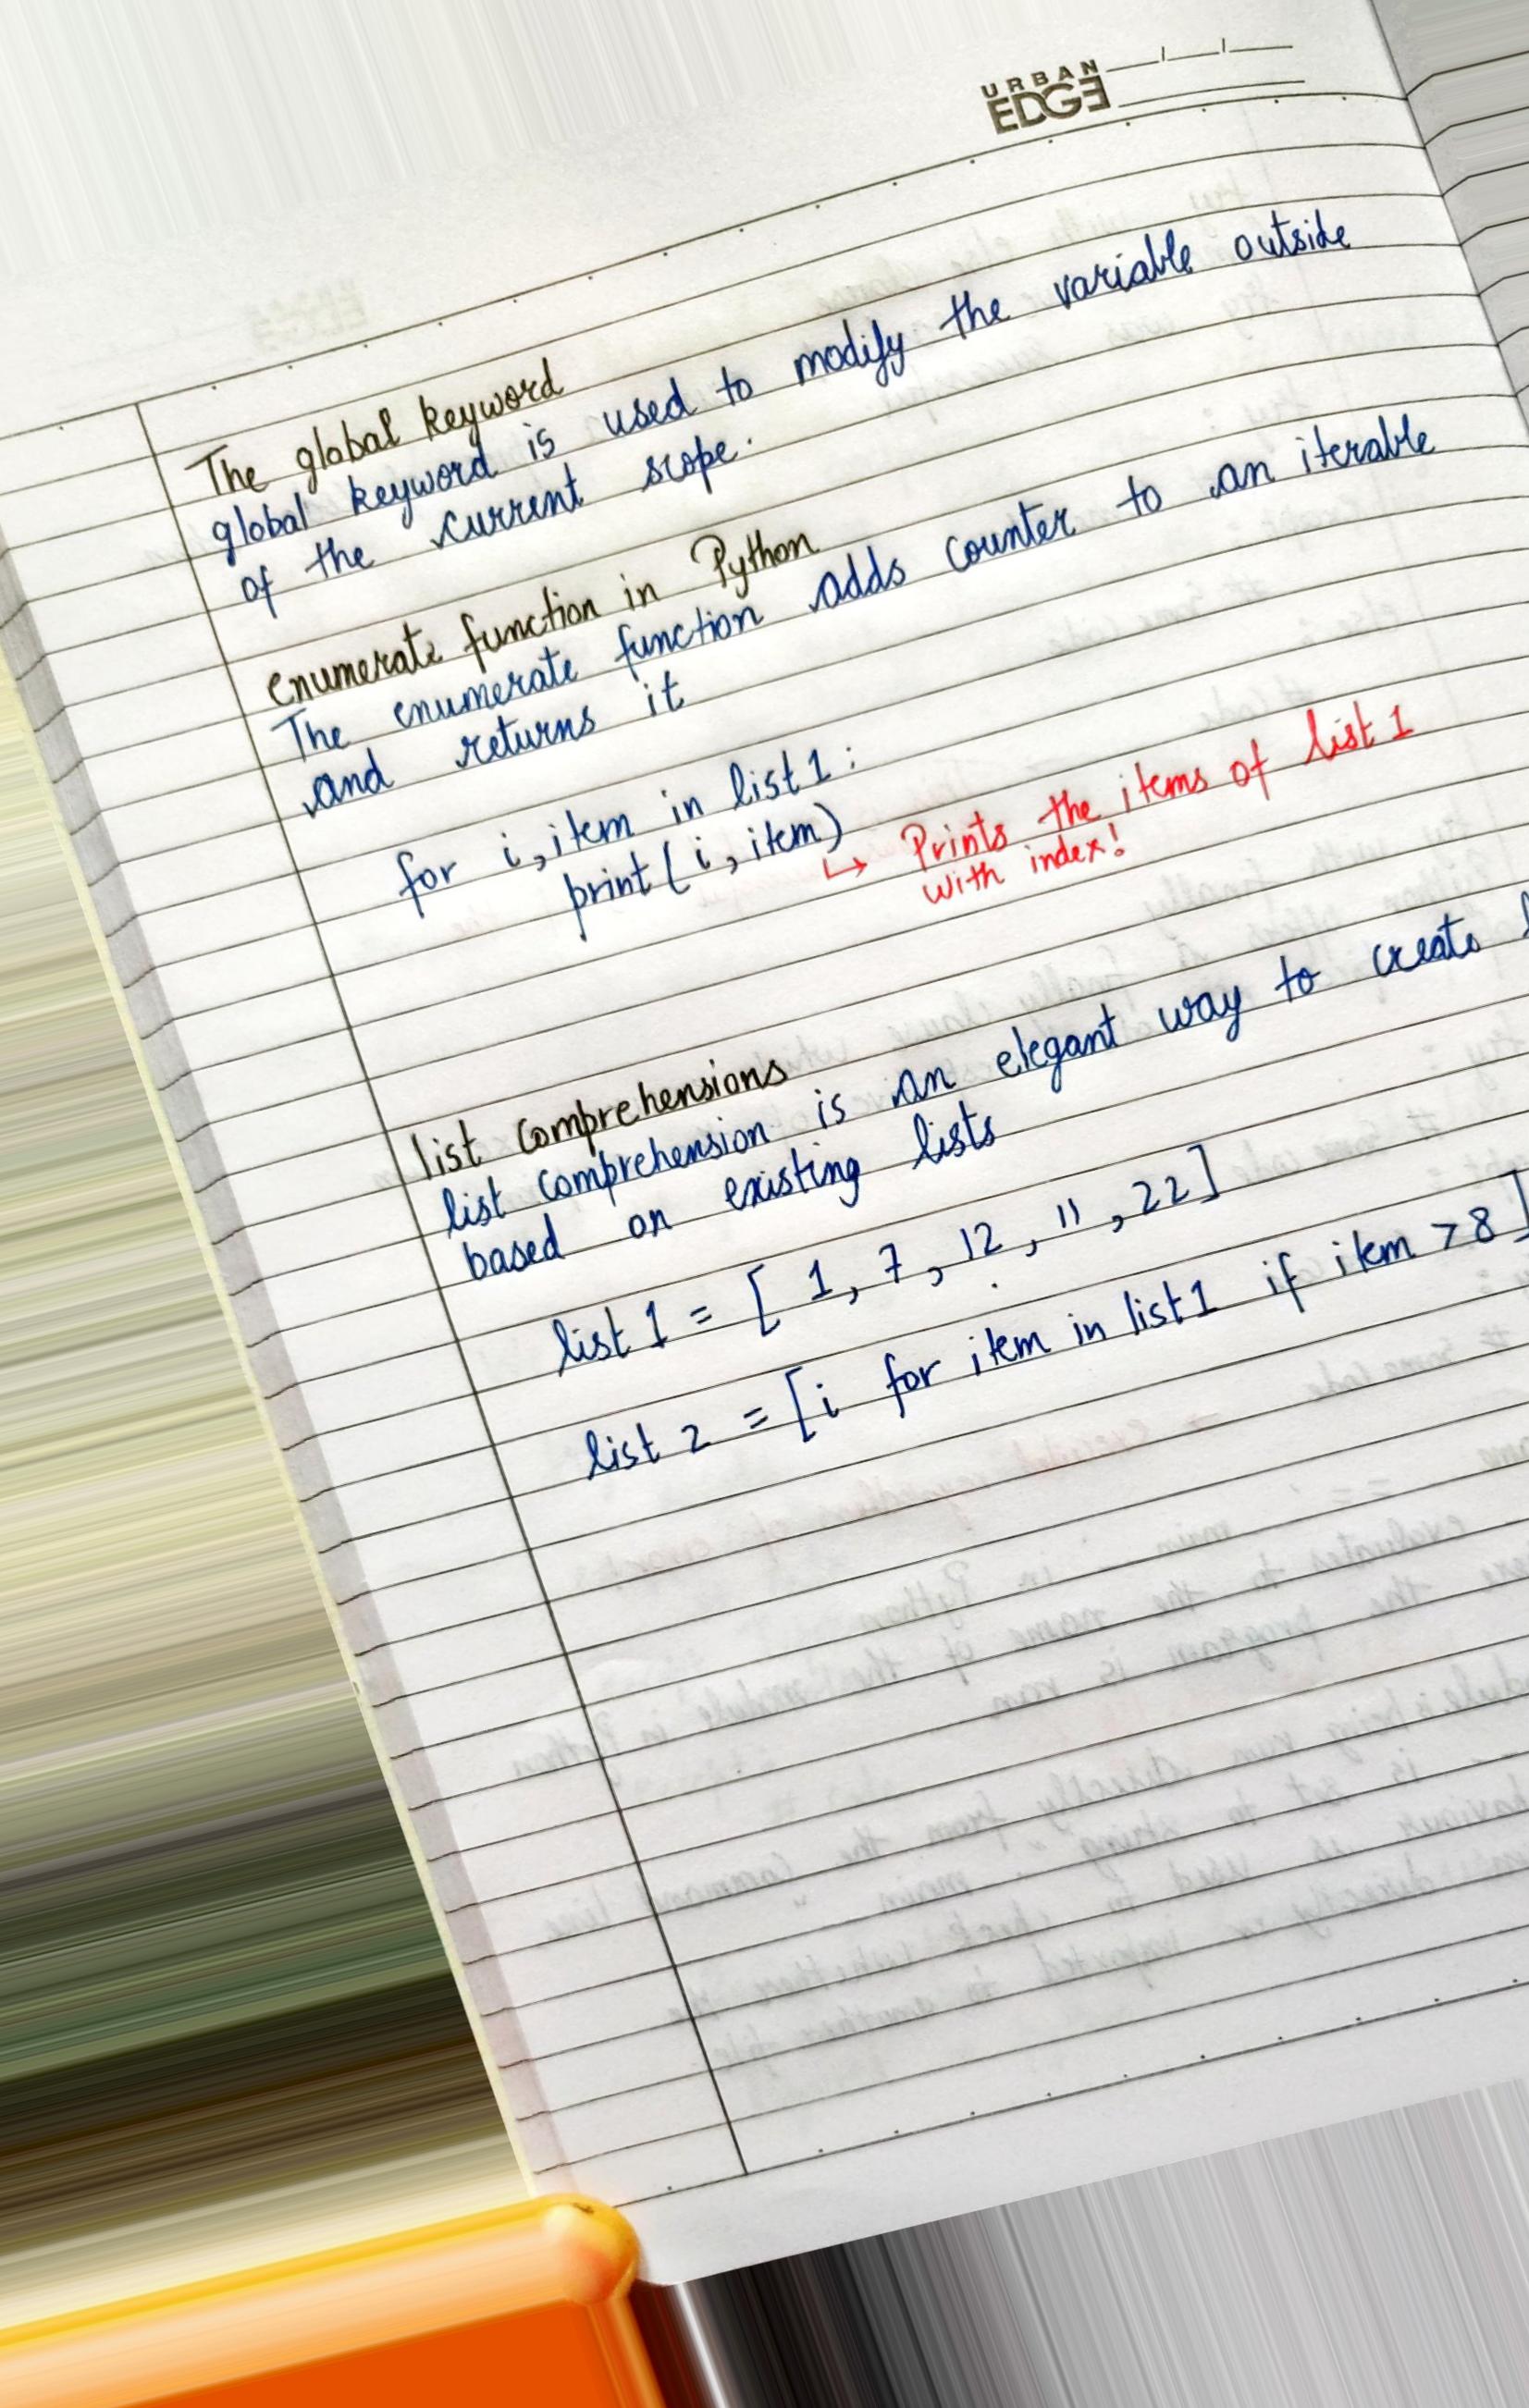 URBAN
EDGE
The global keyword
global keyword is used to modify the variable outside
of the current scope.
enumerate function in Python
The enumerate function adds counter to an iterable
and returns it
for i, item in list1:
print(i, item)
↳ Prints the items of list 1
with index!
list comprehensions
list comprehension is an elegant way to create
based on existing lists
list 1 = [ 1, 7, 12, 11, 22]
list 2 = [i for item in list1 if item >8]